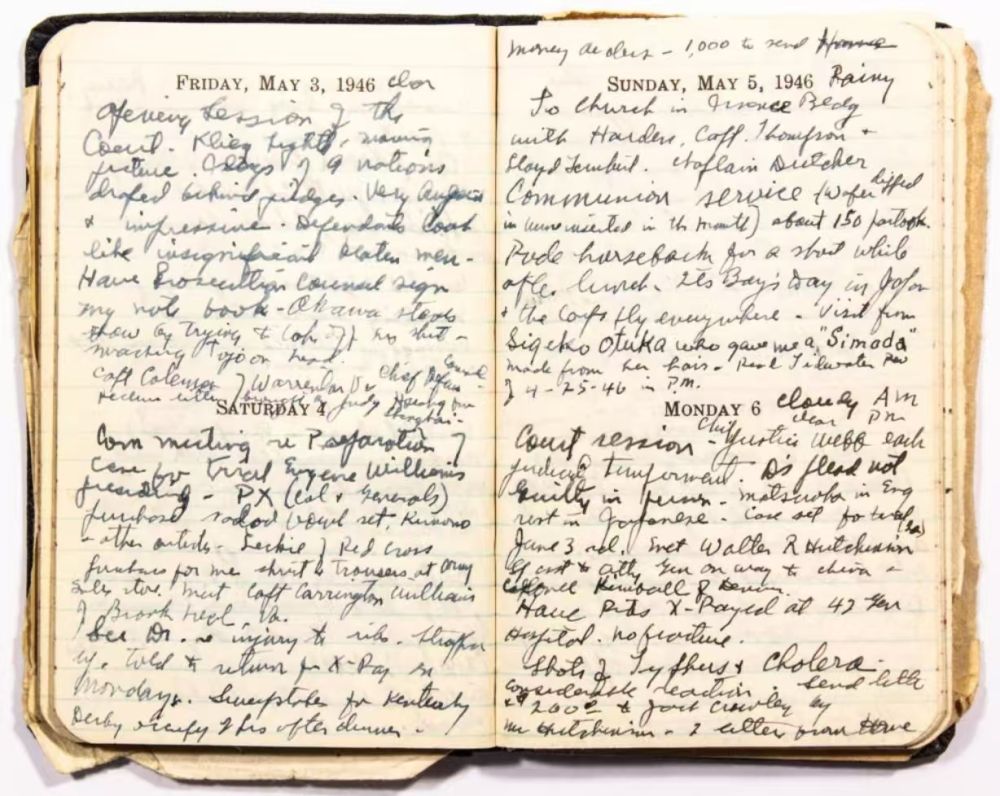 FRIDAY, MAY 3, 1946 clear
Opening Session of the
Court. Klieg lights, moving
picture. Flags of 9 nations
draped behind judges. Very August
& impressive. Defendants look
like insignificant little men.
Have Prosecution Counsel sign
my note book - Okawa steals
show by trying to take off his shirt -
smacking Tojo on head.
Capt Coleman Chief Defense Counsel
SATURDAY 4
Com meeting re Preparation of
Case for trial Eugene Williams
presiding - PX (Col & Generals)
purchase salad bowl set, Kimono
& other articles. Leckie of Red Cross
purchases for me shirt & trousers at Army
Sales store. Meet Capt Carrington Williams
of Brook Va.
See Dr. re injury to ribs. Straps me
up. Told to return for X-Ray on
Monday. Sweepstakes for Kentucky
Derby after dinner.
money order - 1,000 to send Home
SUNDAY, MAY 5, 1946 Rainy
To Church in Bldg
with Harders, Capt. Thompson &
Lloyd. Chaplain Dutcher
Communion service (wafer dipped
in wine inserted in the mouth) about 150 partook.
Rode horseback for a short while
after lunch. It's Boy's Day in Japan
& the Carps fly everywhere - Visit from
Sigeko Otuka who gave me a "Simada"
made from her hair. Read Tidewater Rev
of 4-25-46 in P.M.
MONDAY 6 cloudy AM
clear PM
Court session - Chief Justice Webb each
judicial temperment. D's plead not
Guilty in person. Matsuoka in Eng
rest in Japanese. Case set for trial
June 3rd. Met Walter R Hutchinson
Asst to Atty Gen on way to China -
Colonel Kimball of
Have Ribs X-Rayed at 42 Gen
Hospital. No fracture.
Shots of Typhus & Cholera.
considerable reaction. Send letter
& 200 to Crowley by
Mr Hutchinson - 2 letters from Home